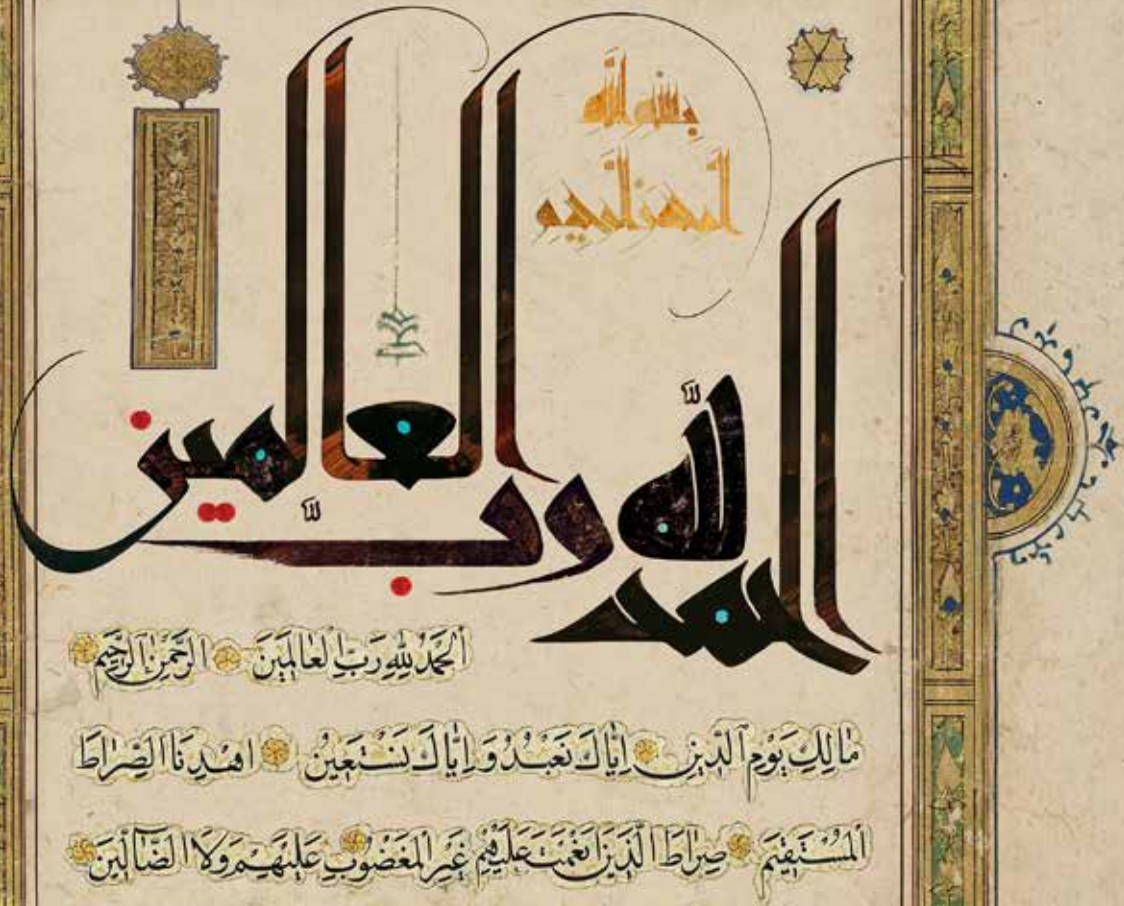 بسم الله
الرحمن الرحيم
الحمد لله رب العالمين
اَلْحَمْدُ لِلّٰهِ رَبِّ الْعَالَمِينَ الرَّحْمٰنِ الرَّحِيمِ
مَالِكِ يَوْمِ الدِّينِ اِيَّاكَ نَعْبُدُ وَ اِيَّاكَ نَسْتَعِينُ اهْدِنَا الصِّرَاطَ
الْمُسْتَقِيمَ صِرَاطَ الَّذِينَ اَنْعَمْتَ عَلَيْهِمْ غَيْرِ الْمَغْضُوبِ عَلَيْهِمْ وَلَا الضَّالِّينَ